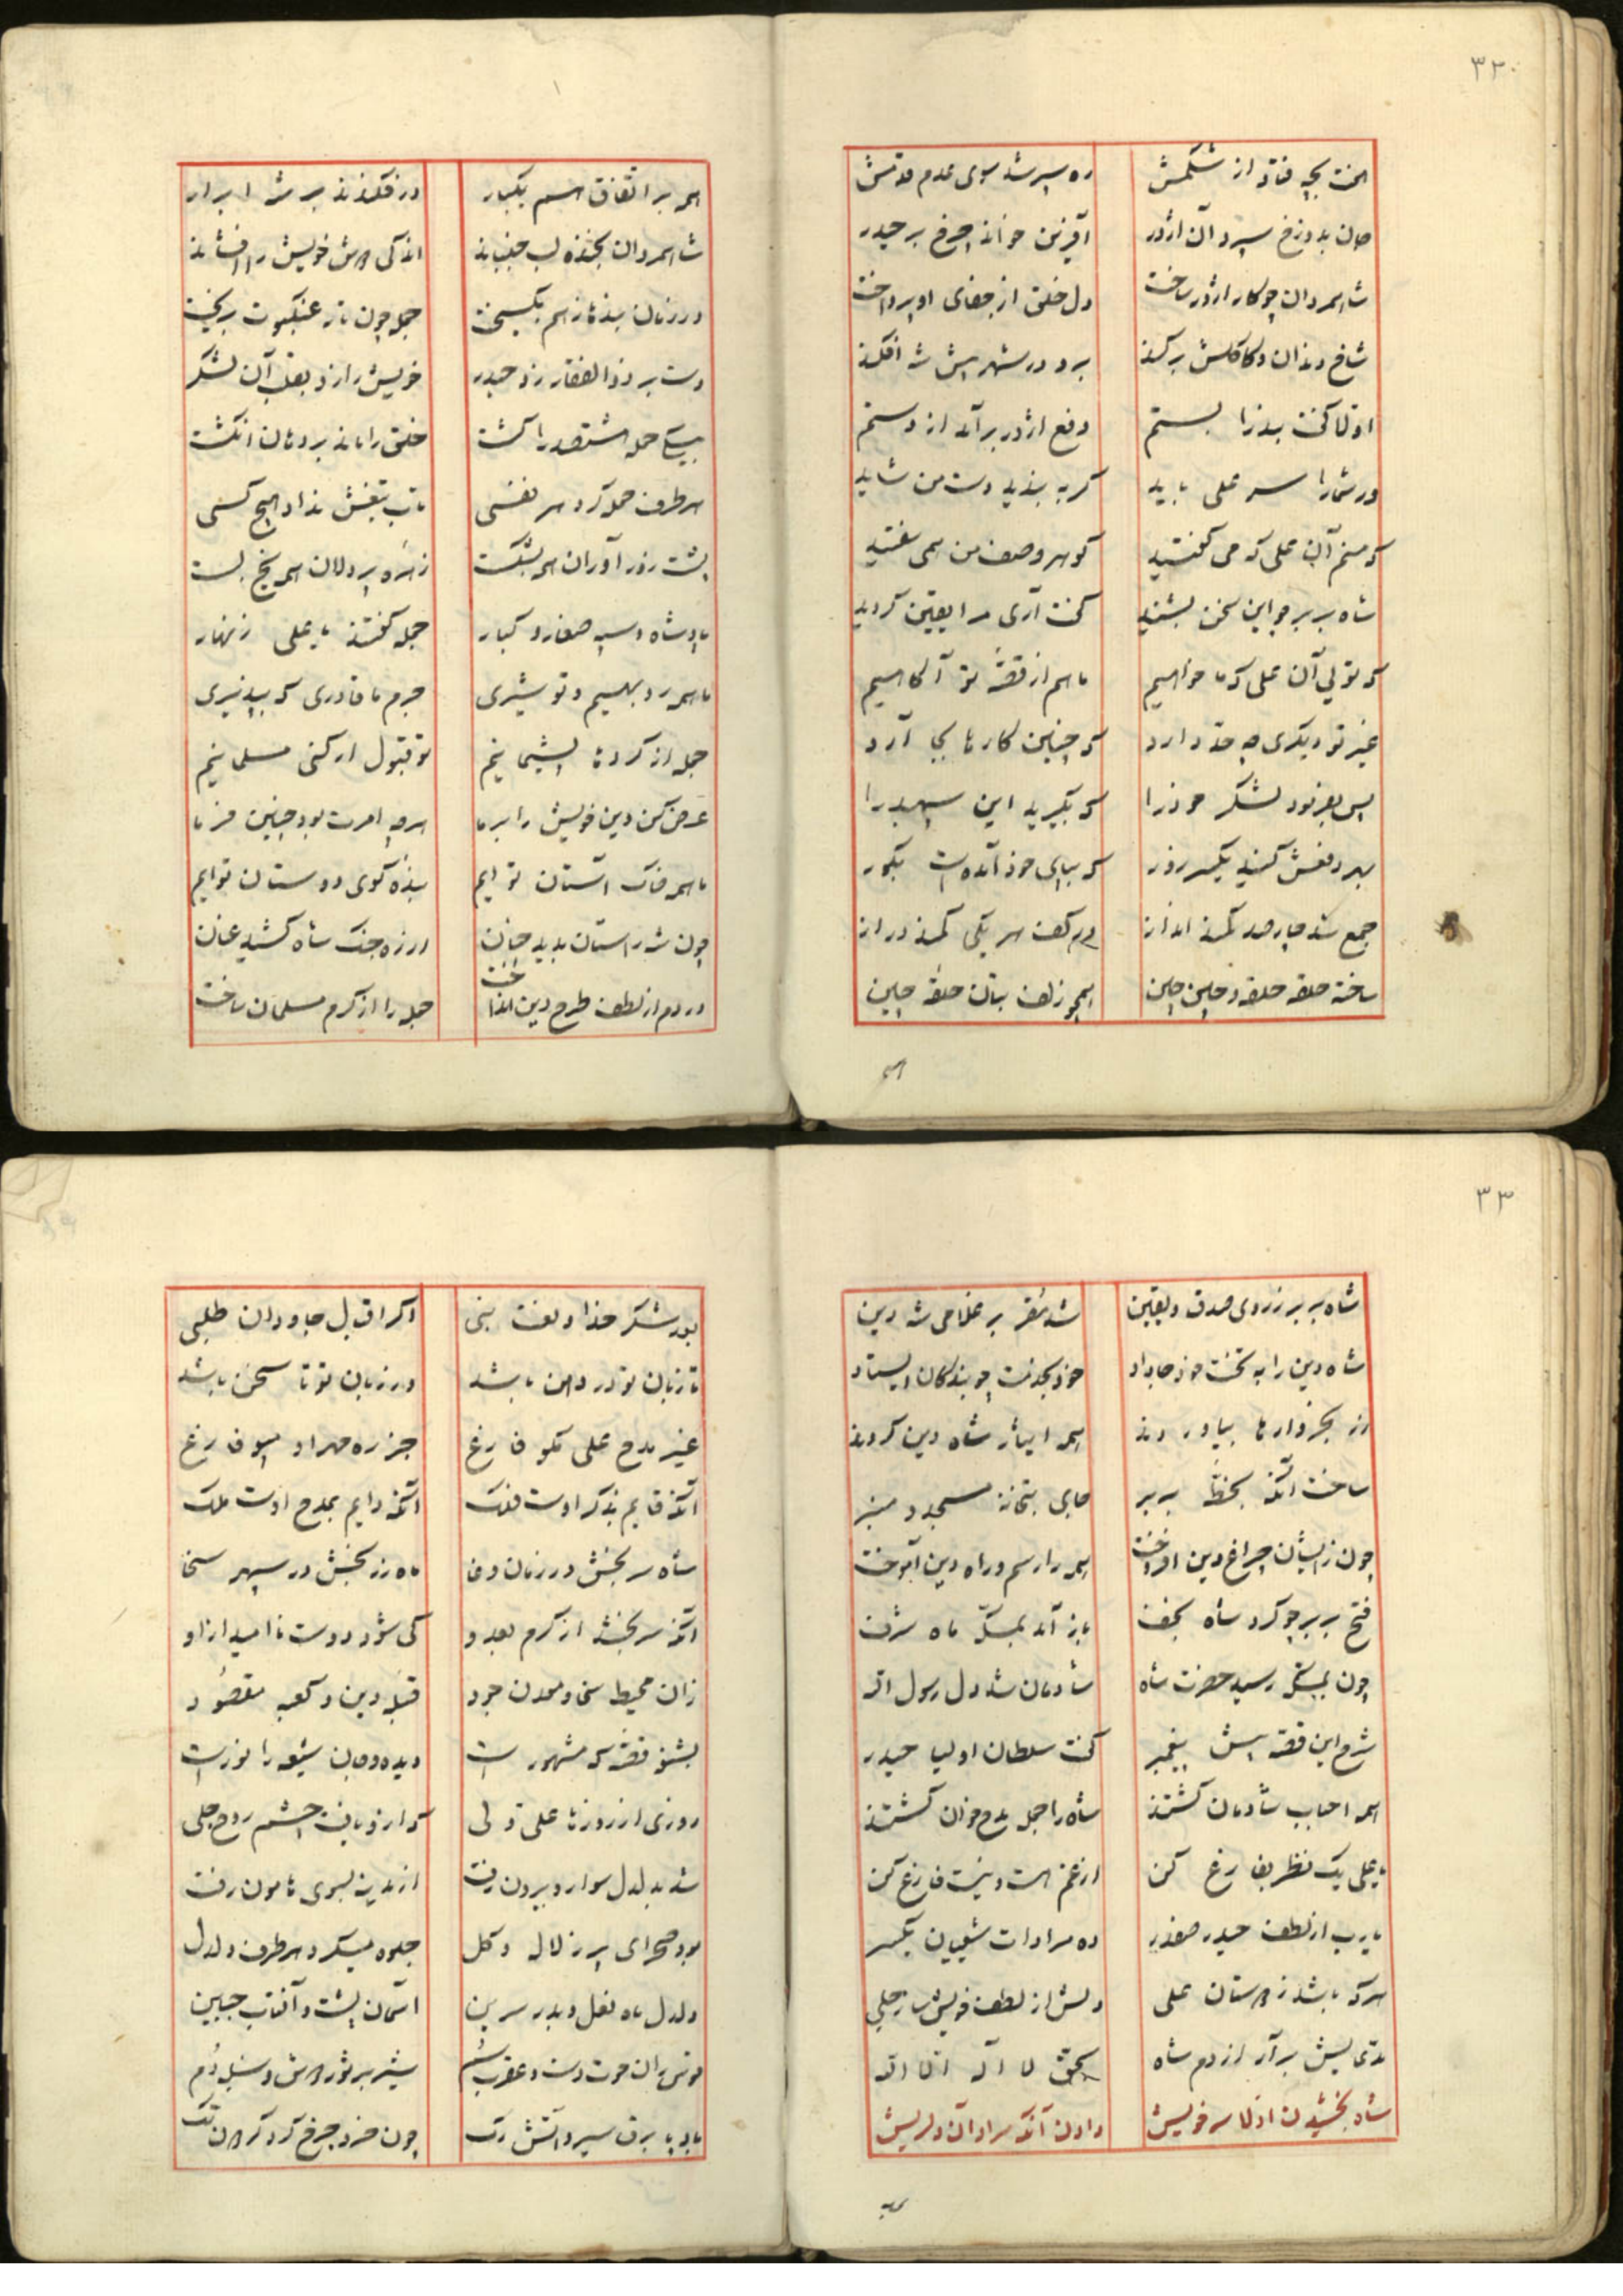 ۳۲۰
هفت بچه فتاد از شکمش ره سپر شد سوی عدم قدمش
جان بدوزخ سپرد آن اژدر آفرین خواند چرخ بر حیدر
شاه مردان چو کار اژدر ساخت دل خلق از جفای او پرداخت
شاخ و دندان و کاکلش برکند برد در شهر پیش شه افکند
اولا گفت بند را بستم دفع اژدر برآمد از دستم
ور شما را سر علی باید گر به بندید دست من شاید
که منم آن علی که می گفتید گوهر وصف من همی سفتید
شاه بربر چو این سخن بشنید گفت آری مرا یقین گردید
که تویی آن علی که ما خواهیم ما هم از قصه تو آگاهیم
غیر تو دیگری چه حد دارد که چنین کارها بجا آرد
پس بفرمود لشکر خود را که بگیرید این سپهبد را
بهر دفعش کنید یکسر زور که بپای خود آمدست بگور
جمع شد چار صد کمند انداز در کف هر یکی کمند دراز
ساخته حلقه حلقه و چین چین همچو زلف بتان حلقه چین
همه
همه بر اتفاق هم یکبار در فکندند بر شه ابرار
شاه مردان بخنده لب جنباند اندکی دوش خویش را افشاند
در زمان بندها ز هم بگسیخت جمله چون تار عنکبوت بریخت
دست بر ذوالفقار زد حیدر خویش را زد بقلب آن لشکر
بیکی حمله هشتصد را کشت خلق را ماند بر دهان انگشت
هر طرف حمله کرد هر نفسی تاب تیغش نداد هیچ کسی
پشت زور آوران همه بشکست زهره پر دلان همه یخ بست
پادشاه و سپه صغار و کبار جمله گفتند یا علی زنهار
ما همه روبهیم و تو شیری جرم ما قادری که بپذیری
جمله از کرده پشیمانیم تو قبول ار کنی مسلمانیم
عرض کن دین خویش را بر ما هر چه امرت بود چنین فرما
ما همه خاک آستان تو ایم بنده کوی دوستان تو ایم
چون شه راستان بدید چنان از ره جنگ شاه کشید عنان
در دم از لطف طرح دین انداخت جمله را از کرم مسلمان ساخت
۳۳
شاه بربر ز روی صدق و یقین شد مقر بر غلامی شه دین
شاه دین را به تخت خود جا داد خود بخدمت چو بندگان ایستاد
زر بخروارها بیاوردند همه ایثار شاه دین کردند
ساخت آنگه بخطه بربر جای بتخانه مسجد و منبر
چون ز ایشان چراغ دین افروخت همه را رسم و راه دین آموخت
فتح بربر چو کرد شاه نجف باز آمد بمکه ماه شرف
چون بمکه رسید حضرت شاه شادمان شد دل رسول الله
شرح این قصه پیش پیغمبر گفت سلطان اولیا حیدر
همه احباب شادمان گشتند شاه را جمله مدح خوان گشتند
یا علی یک نظر بفارغ کن از غم هست و نیست فارغ کن
یارب از لطف حیدر صفدر ده مرادات شیعیان یکسر
هر که باشد ز دوستان علی دلش از لطف خویش ساز جلی
مدعایش برآر از دم شاه بحق لا اله الا الله
شاه بخشیدن اولا سر خویش دادن آنگه مراد آن دلریش
بود
بود شکر خدا و نعت نبی اگر اقبال جاودان طلبی
تا زبان تو در دهن باشد در زبان تو تا سخن باشد
غیر مدح علی مگو فارغ جز ره مهر او مپو فارغ
آنکه قایم بذکر اوست فلک آنکه دایم بمدح اوست ملک
شاه سر بخش در زمان وفا ماه زر بخش در سپهر سخا
آنکه سر بخشد از کرم بعدو کی شود دوست ناامید ازو
زان محیط سخا و معدن جود قبله دین و کعبه مقصود
بشنو قصه که مشهور است دیده و جان شیعه را نور است
روزی از روزها علی ولی که ازو یافت چشم روح جلی
شد بدلدل سوار و بیرون رفت از مدینه بسوی هامون رفت
بود صحرای پر ز لاله و گل جلوه میکرد هر طرف دلدل
دلدل ماه نعل و بدر سرین آسمان پشت و آفتاب جبین
قوس ران حوت دست و عقرب سم شیر بر ثور دوش و سنبله دم
باد پا برق سیر و آتش رگ چون خرد چرخ گرد گردون تگ